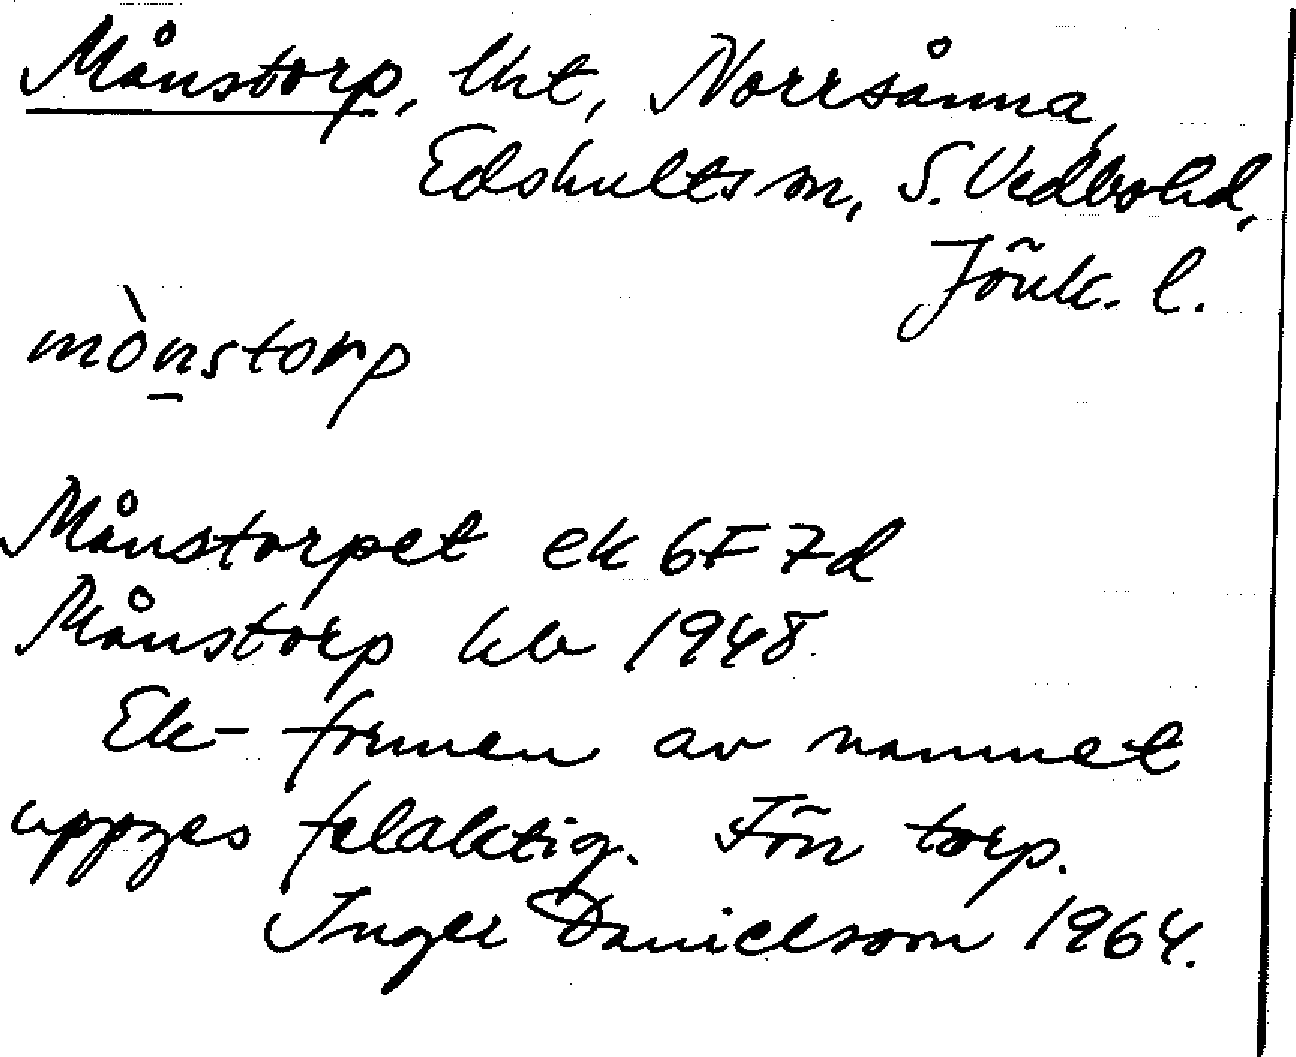 Månstorp, lht, Norrsånna,
Edshults sn, S. Vedbo hd,
Jönk. l.
mònstorp
Månstorpet ek 6F 7d
Månstorp kb 1948
Ek-formen av namnet
uppges felaktig. Förr torp.
Inger Danielsson 1964.